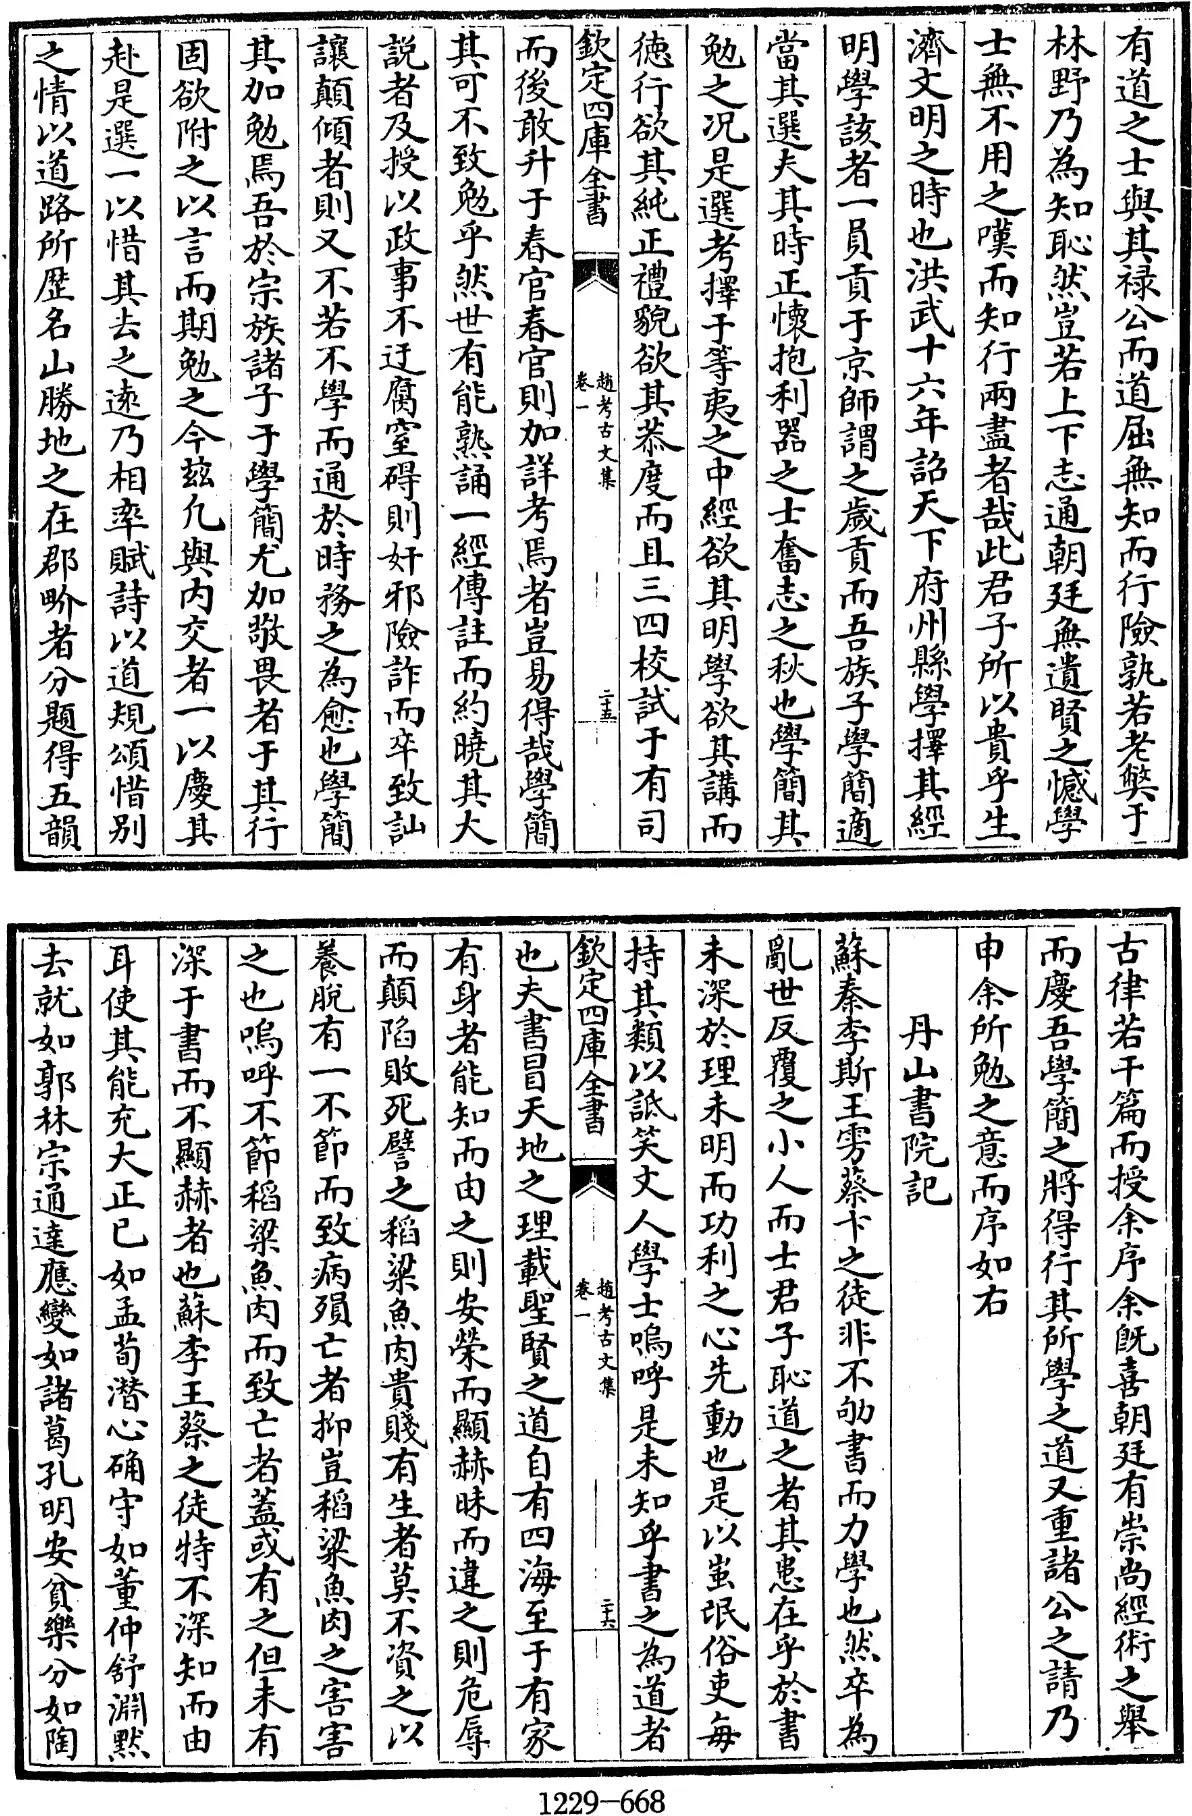 有道之士與其祿公而道屈無知而行險孰若老斃于
林野乃為知恥然豈若上下志通朝廷無遺賢之憾學
士無不用之嘆而知行兩盡者哉此君子所以貴乎生
濟文明之時也洪武十六年詔天下府州縣學擇其經
明學該者一員貢于京師謂之歲貢而吾族子學簡適
當其選夫其時正懷抱利器之士奮志之秋也學簡其
勉之况是選考擇于等夷之中經欲其明學欲其講而
德行欲其純正禮貌欲其恭度而且三四校試于有司
欽定四庫全書
趙考古文集
卷一
二十五
而後敢升于春官春官則加詳考焉者豈易得哉學簡
其可不致勉乎然世有能熟誦一經傳註而約曉其大
説者及授以政事不迂腐窒碍則奸邪險詐而卒致訕
讓顛傾者則又不若不學而通於時務之為愈也學簡
其加勉焉吾於宗族諸子于學簡尤加敬畏者于其行
固欲附之以言而期勉之今兹凡與内交者一以慶其
赴是選一以惜其去之遠乃相率賦詩以道規頌惜别
之情以道路所歷名山勝地之在郡畍者分題得五韻
古律若干篇而授余序余既喜朝廷有崇尚經術之舉
而慶吾學簡之將得行其所學之道又重諸公之請乃
申余所勉之意而序如右
丹山書院記
蘇秦李斯王雱蔡卞之徒非不劬書而力學也然卒為
亂世反覆之小人而士君子恥道之者其患在乎於書
未深於理未明而功利之心先動也是以蚩氓俗吏每
持其類以詆笑丈人學士嗚呼是未知乎書之為道者
欽定四庫全書
趙考古文集
卷一
二十六
也夫書冒天地之理載聖賢之道自有四海至于有家
有身者能知而由之則安榮而顯赫昧而違之則危辱
而顛陷敗死譬之稻粱魚肉貴賤有生者莫不資之以
養脱有一不節而致病殞亡者抑豈稻粱魚肉之害害
之也嗚呼不節稻粱魚肉而致亡者蓋或有之但未有
深于書而不顯赫者也蘇李王蔡之徒特不深知而由
耳使其能充大正已如孟荀潜心确守如董仲舒淵黙
去就如郭林宗通達應變如諸葛孔明安貧樂分如陶
1229-668